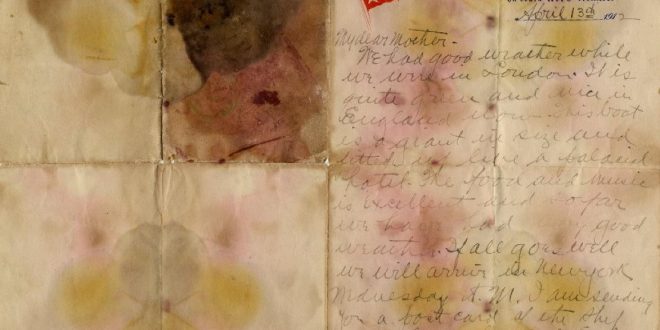 April 13th 1912
My dear Mother-
We had good weather while
we were in London. It is
quite green and nice in
England now. This boat
is giant in size and
fitted up like a palacial
hotel. The food and music
is excellent and so far
we have had good
weather. If all goes well
we will arrive in New York
Wednesday A.M. I am sending
you a post card of the ship